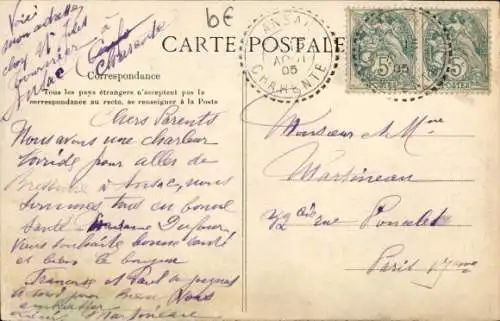 Voici
mon adresse
chez Mr
à
Ansac
Charente
6€
CARTE POSTALE
Correspondance
Tous les pays étrangers n'acceptent pas la
correspondance au recto, se renseigner à la Poste
ANSAC
05
CHARENTE
5 POSTES
5 POSTES
Chers Parents
Nous avons une chaleur
torride pour aller de
à Ansac, nous
sommes tous en bonne
santé Madame Dufour
vous souhaite bonne santé
et bien le bonjour
Françoise et Paul se joignent
à moi pour bien vous
embrasser
Martineau
Monsieur et Mme
Martineau
1/2 cité rue Poncelet
Paris 17ème